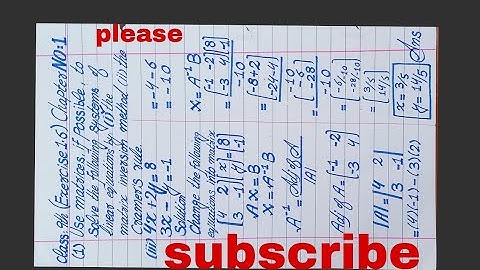 please
Class 9th (Exercise 1.6) Chapter NO:1
(1) Use matrices, if possible, to
solve the following systems of
linear equations by (i) the
matrix inversion method (ii) the
Cramer's rule.
(iii) 4x + 2y = 8
3x - y = -1
Solution
Change the following
equations into matrix
[4 2
3 -1] [x
y] = [8
-1]
A·X = B
X = A⁻¹B
A⁻¹ = Adj of A / |A|
Adj of A = [-1 -2
-3 4]
|A| = |4 2
3 -1|
= (4)(-1) - (3)(2)
= -4 - 6
= -10
X = A⁻¹ B
= [-1 -2
-3 4] [8
-1] / -10
= [-8+2
-24-4] / -10
= [-6
-28] / -10
= [-6/-10
-28/-10]
= [3/5
14/5]
x = 3/5
y = 14/5 Ans
subscribe